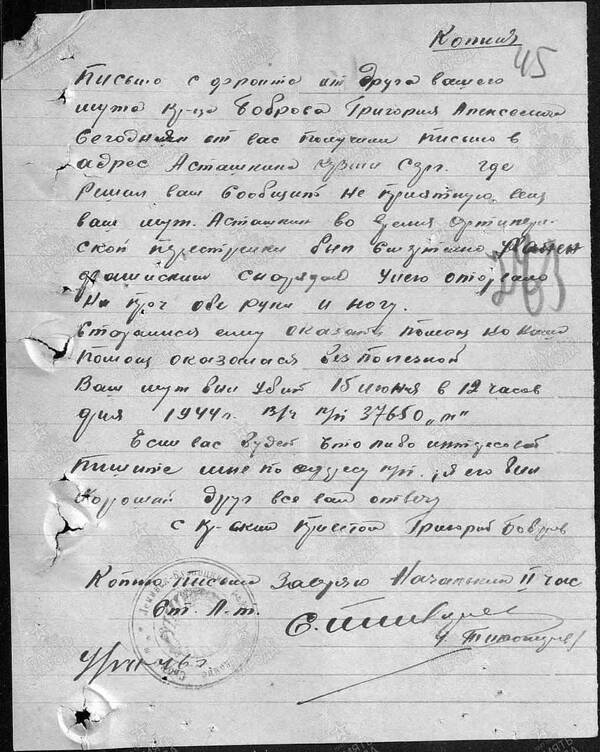 Копия
45
Письмо с фронта от друга вашего
мужа кр-ца Боброва Григория Алексеевича
Сегодня от вас получили письмо в
адрес Асташкина где
Решил вам сообщить не приятную весь
ваш муж. Асташкин во время Артилери-
ской перестрелки был смертельно Ранен
фашиским снарядом у него оторвало
На проч обе руки и ногу.
Старамися ему оказать помощ но наша
помощ оказалася без полезной
Ваш муж был убит 15 июня в 12 часов
дня 1944г. в/ч п/п 37650 „м"
Если вас будет что либо интересоват
пишите мне по адресу п/п. я его был
хороший друг все вам отвечу
с кр-ским приветом Григорий Бобров
Копию письма Заверяю Начальник II час
Ст. Л-т.